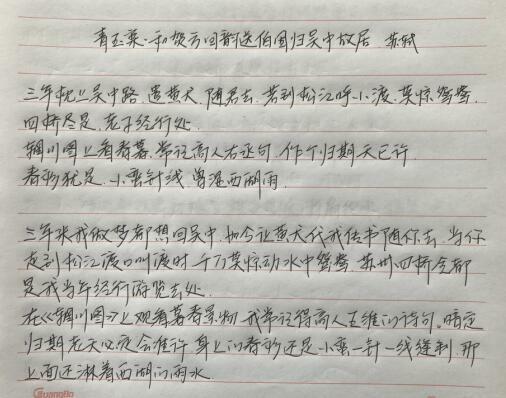 青玉案·和贺方回韵送伯固归吴中故居 苏轼
三年枕上吴中路.遣黄犬.随君去.若到松江呼小渡.莫惊鸳鸯.
四桥尽是.老子经行处.
辋川图上看春暮.常记高人右丞句.作个归期天已许.
春衫犹是.小蛮针线.曾湿西湖雨.
三年来我做梦都想回吴中.如今让黄犬代我传书随你去.当你
走到松江渡口叫渡时.千万莫惊动水中鸳鸯.苏州四桥全都
是我当年经行游览去处.
在《辋川图》上观看暮春景物.我常记得高人王维的诗句.暗定
归期老天必定会准许.身上的春衫还是小蛮一针一线缝制.那
上面还淋着西湖的雨水.
GuangBo